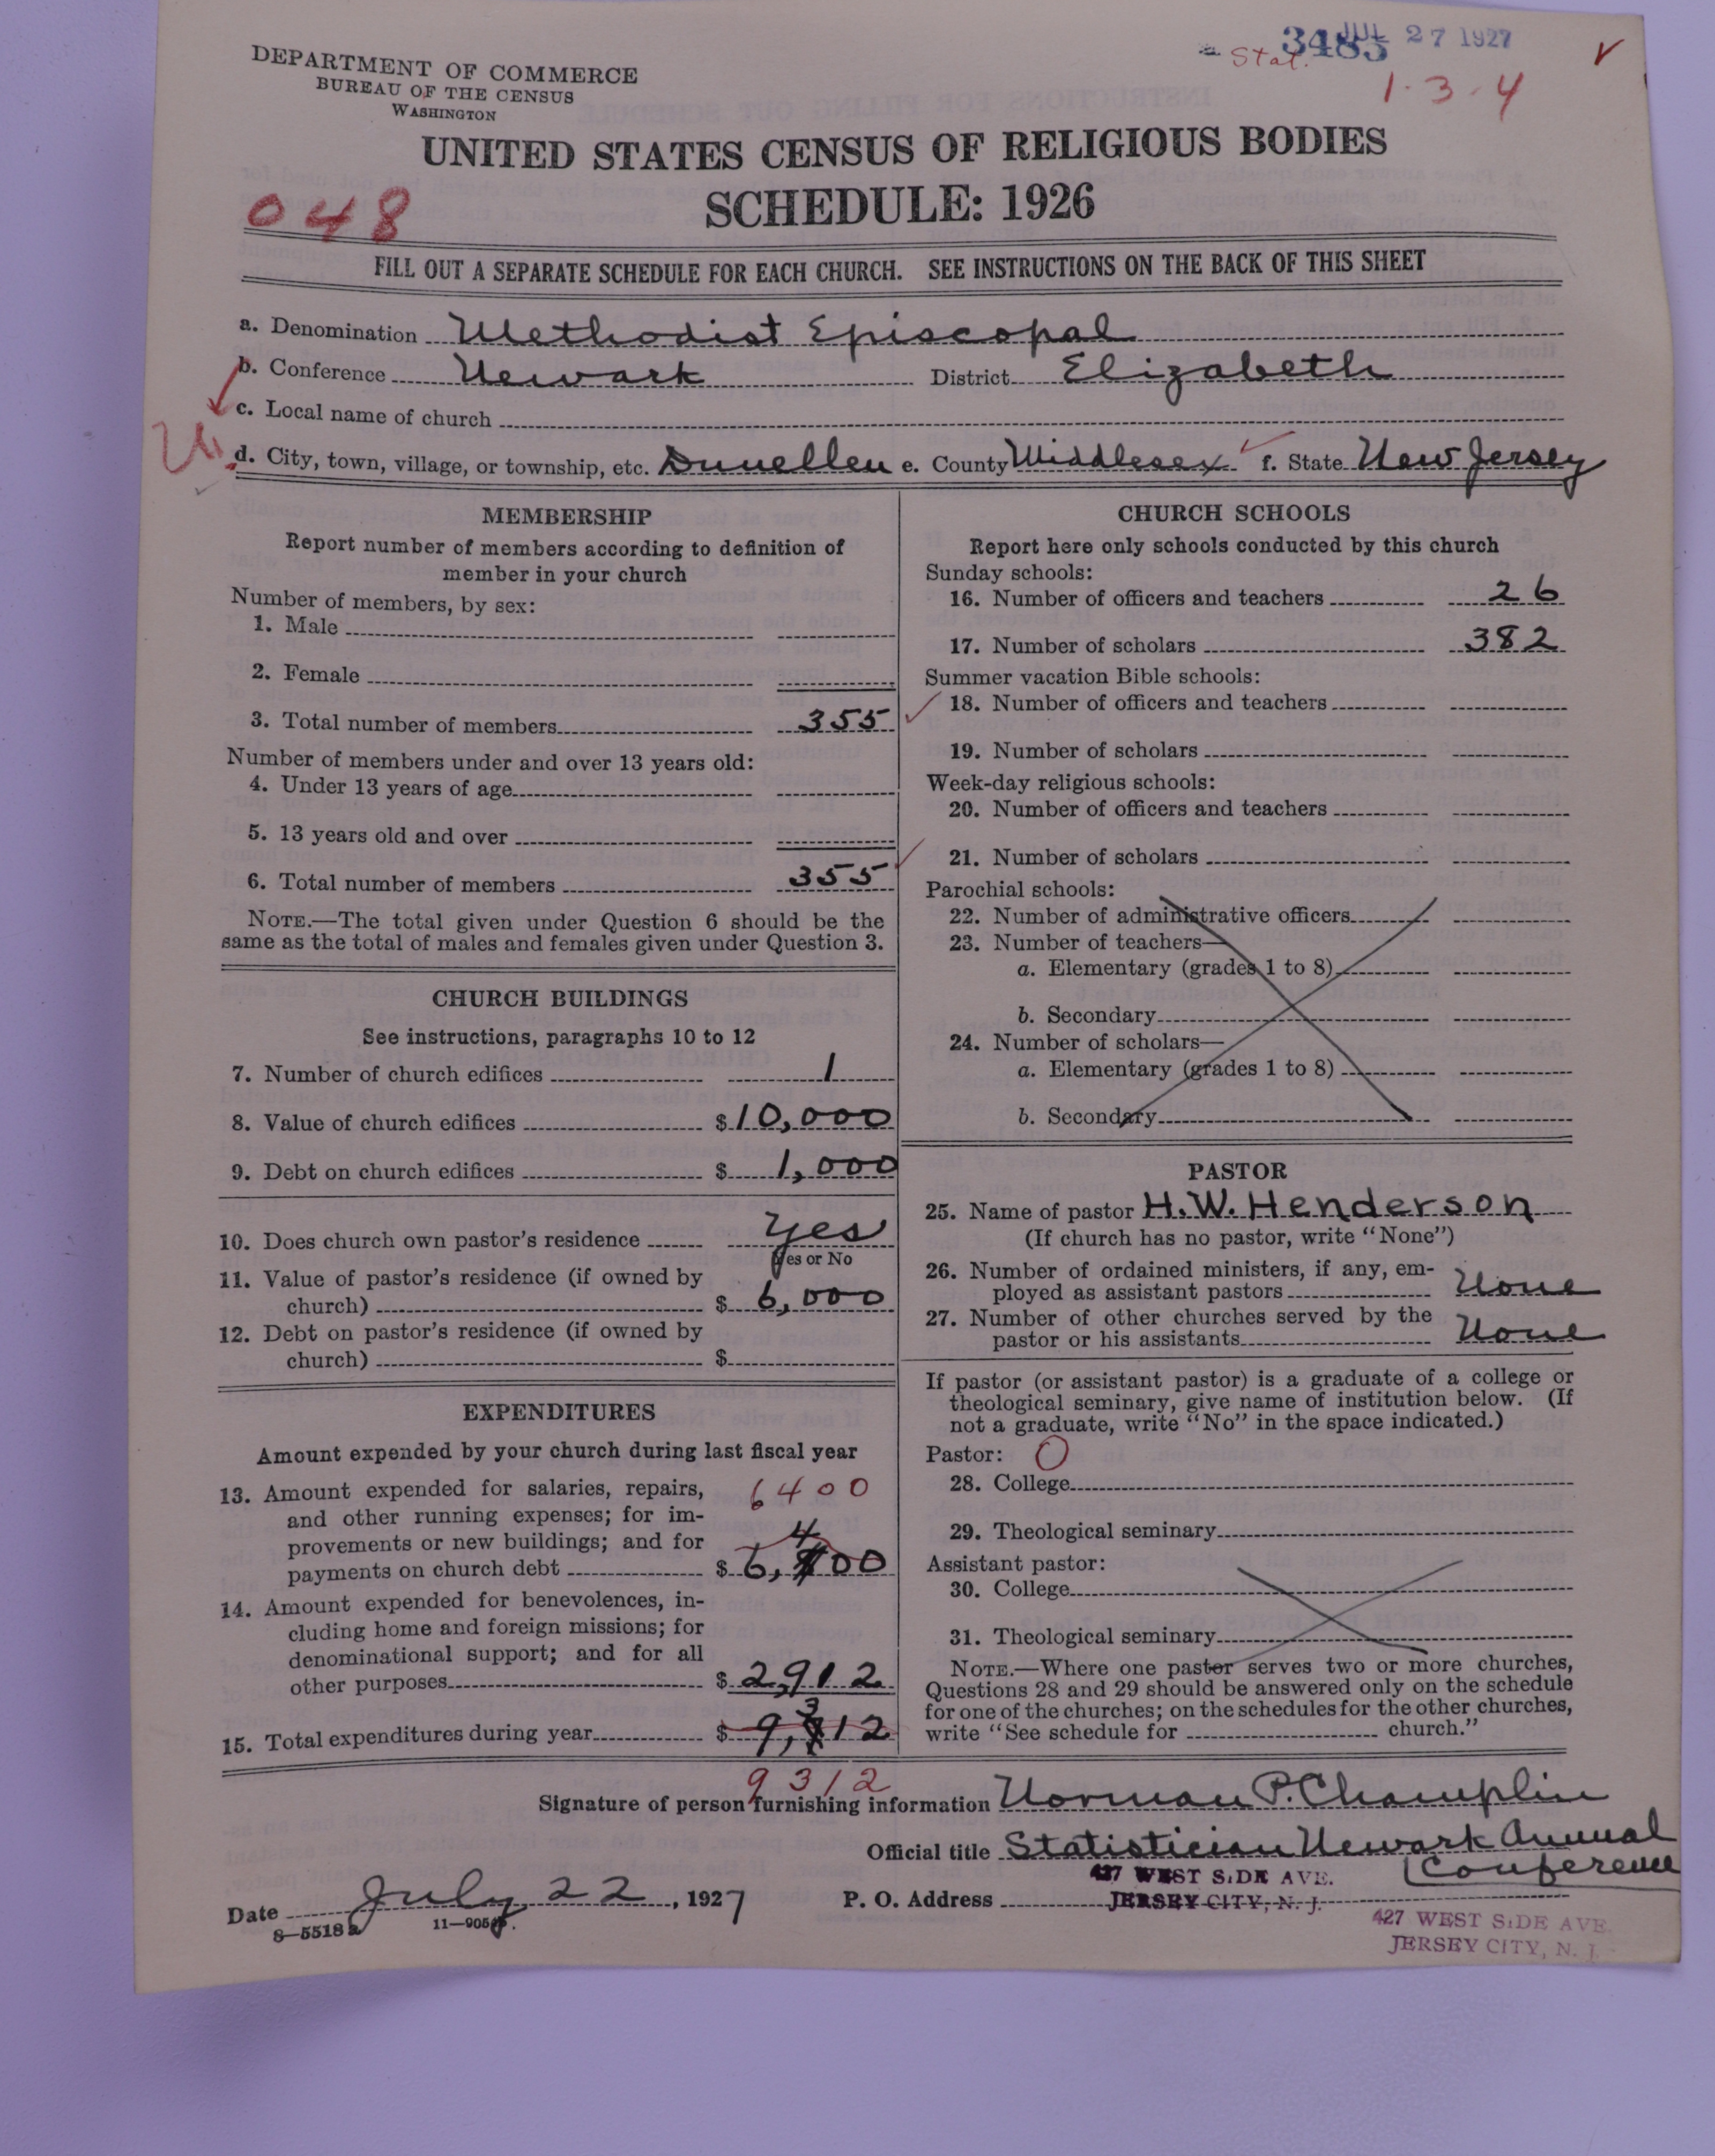 DEPARTMENT OF COMMERCE
BUREAU OF THE CENSUS
WASHINGTON
Stat. 3485 JUL 27 1927
1-3-4
UNITED STATES CENSUS OF RELIGIOUS BODIES
SCHEDULE: 1926
048
FILL OUT A SEPARATE SCHEDULE FOR EACH CHURCH. SEE INSTRUCTIONS ON THE BACK OF THIS SHEET
a. Denomination Methodist Episcopal
b. Conference Newark District Elizabeth
c. Local name of church
d. City, town, village, or township, etc. Dunellen e. County Middlesex f. State New Jersey
MEMBERSHIP
Report number of members according to definition of
member in your church
Number of members, by sex:
1. Male
2. Female
3. Total number of members 355
Number of members under and over 13 years old:
4. Under 13 years of age
5. 13 years old and over
6. Total number of members 355
NOTE.—The total given under Question 6 should be the
same as the total of males and females given under Question 3.
CHURCH BUILDINGS
See instructions, paragraphs 10 to 12
7. Number of church edifices 1
8. Value of church edifices $10,000
9. Debt on church edifices $1,000
10. Does church own pastor's residence yes
Yes or No
11. Value of pastor's residence (if owned by
church) $6,000
12. Debt on pastor's residence (if owned by
church) $
EXPENDITURES
Amount expended by your church during last fiscal year
13. Amount expended for salaries, repairs, 6400
and other running expenses; for im-
provements or new buildings; and for 4
payments on church debt $6,400
14. Amount expended for benevolences, in-
cluding home and foreign missions; for
denominational support; and for all
other purposes $2,912
15. Total expenditures during year $9,312
9312
CHURCH SCHOOLS
Report here only schools conducted by this church
Sunday schools:
16. Number of officers and teachers 26
17. Number of scholars 382
Summer vacation Bible schools:
18. Number of officers and teachers
19. Number of scholars
Week-day religious schools:
20. Number of officers and teachers
21. Number of scholars
Parochial schools:
22. Number of administrative officers
23. Number of teachers—
a. Elementary (grades 1 to 8)
b. Secondary
24. Number of scholars—
a. Elementary (grades 1 to 8)
b. Secondary
PASTOR
25. Name of pastor H.W. Henderson
(If church has no pastor, write "None")
26. Number of ordained ministers, if any, em-
ployed as assistant pastors None
27. Number of other churches served by the
pastor or his assistants None
If pastor (or assistant pastor) is a graduate of a college or
theological seminary, give name of institution below. (If
not a graduate, write "No" in the space indicated.)
Pastor: O
28. College
29. Theological seminary
Assistant pastor:
30. College
31. Theological seminary
NOTE.—Where one pastor serves two or more churches,
Questions 28 and 29 should be answered only on the schedule
for one of the churches; on the schedules for the other churches,
write "See schedule for church."
Signature of person furnishing information Norman P. Champlin
Official title Statistician Newark Annual
Conference
427 WEST SIDE AVE.
Date July 22, 1927 P. O. Address JERSEY CITY, N. J.
8—5518a 11—9051
427 WEST SIDE AVE.
JERSEY CITY, N. J.